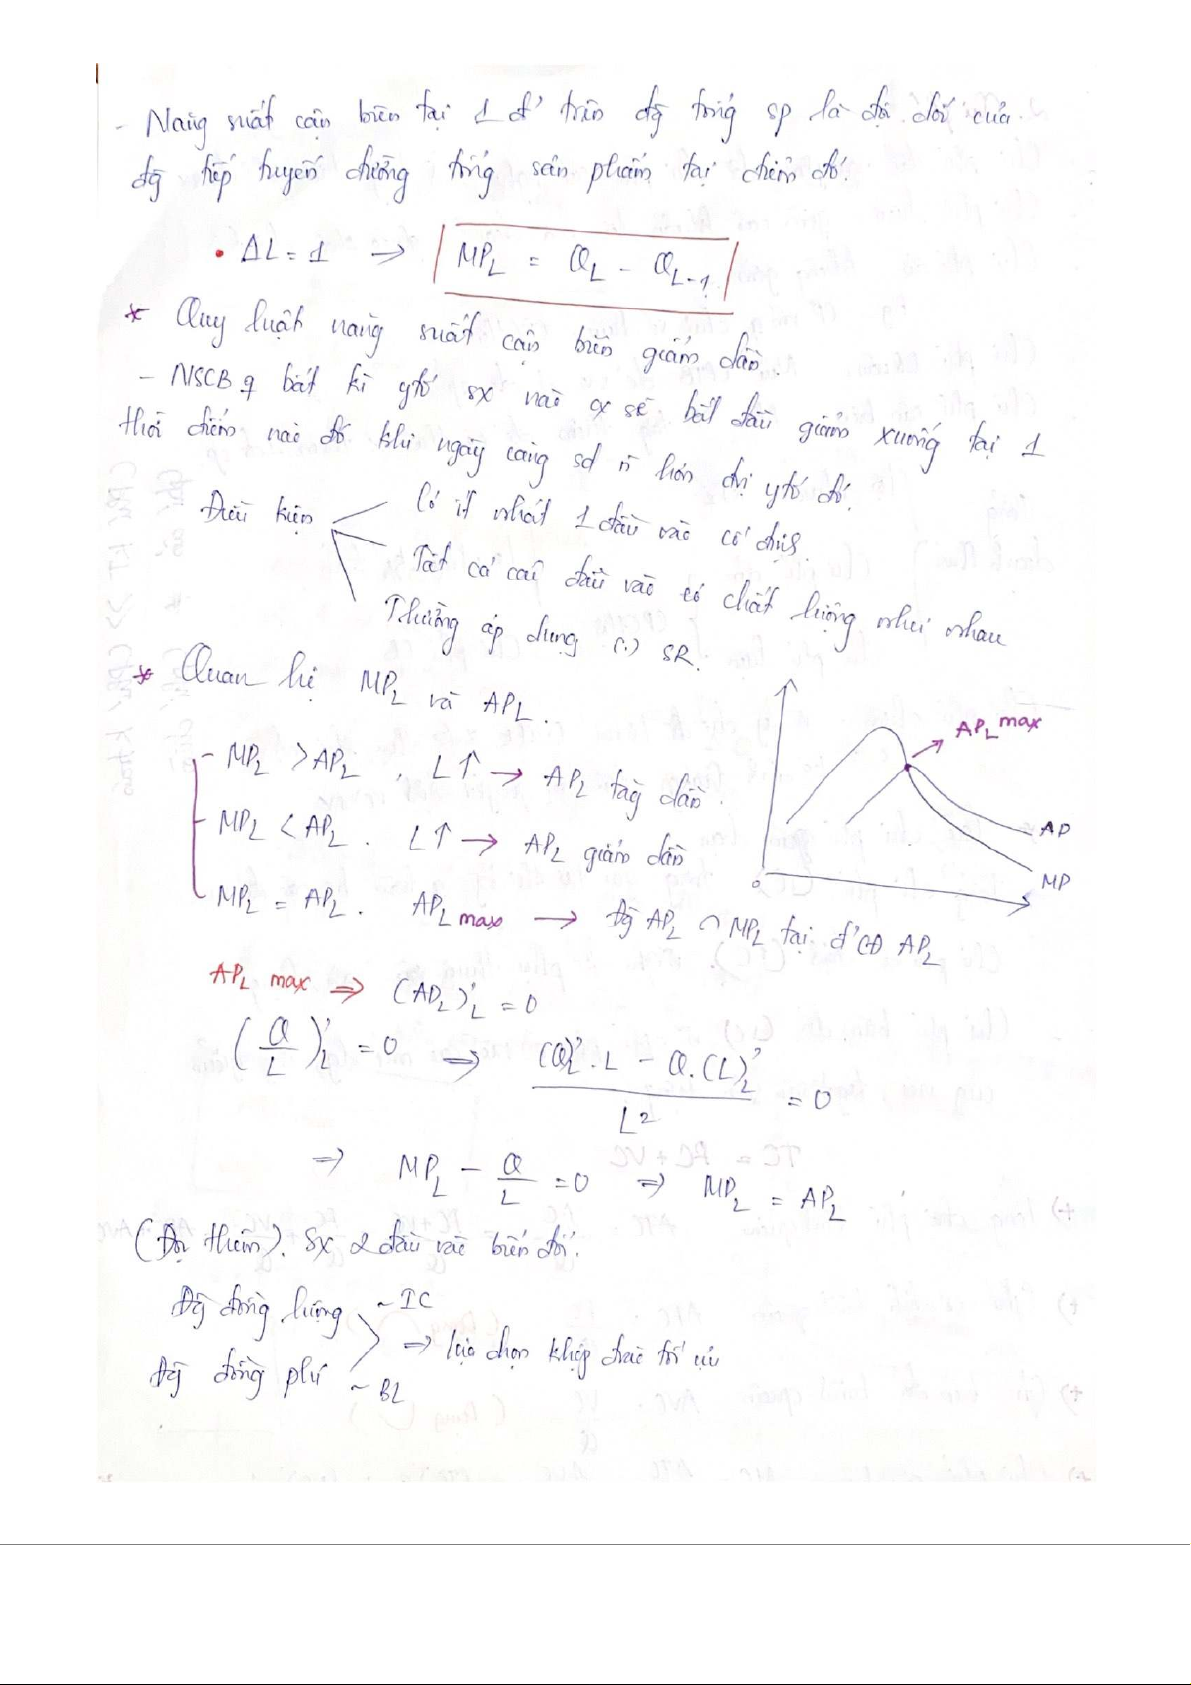 - Năng suất cận biên tại 1 đ' trên đg tổng sp là độ dốc của
đg tiếp tuyến đường tổng sản phẩm tại điểm đó.
• ΔL = 1 → MP_L = Q_L - Q_{L-1}
* Quy luật năng suất cận biên giảm dần
- NSCB q bất kì ytố sx nào cx sẽ bắt đầu giảm xuống tại 1
thời điểm nào đó khi ngày càng sd n̄ hơn đvị ytố đó.
Điều kiện
Có ít nhất 1 đầu vào cố định
Tất cả các đầu vào có chất lượng như nhau
Thường áp dụng (.) SR.
* Quan hệ MP_L và AP_L.
- MP_L > AP_L, L↑ → AP_L tăg dần.
- MP_L < AP_L. L↑ → AP_L giảm dần
- MP_L = AP_L. AP_L max → Đg AP_L ∩ MP_L tại đ' CĐ AP_L
AP_L max
AP
MP
0
AP_L max ⇒ (AP_L)'_L = 0
(Q/L)'_L = 0 ⇒ ((Q)'_L . L - Q.(L)'_L)/L² = 0
⇒ MP_L - Q/L = 0 ⇒ MP_L = AP_L
(Đọc thêm). Sx 2 đầu vào biến đổi.
Đg đồng lượng ~ IC
Đg đồng phí ~ BL
⇒ lựa chọn khợp đvào tối ưu
TC = FC + VC